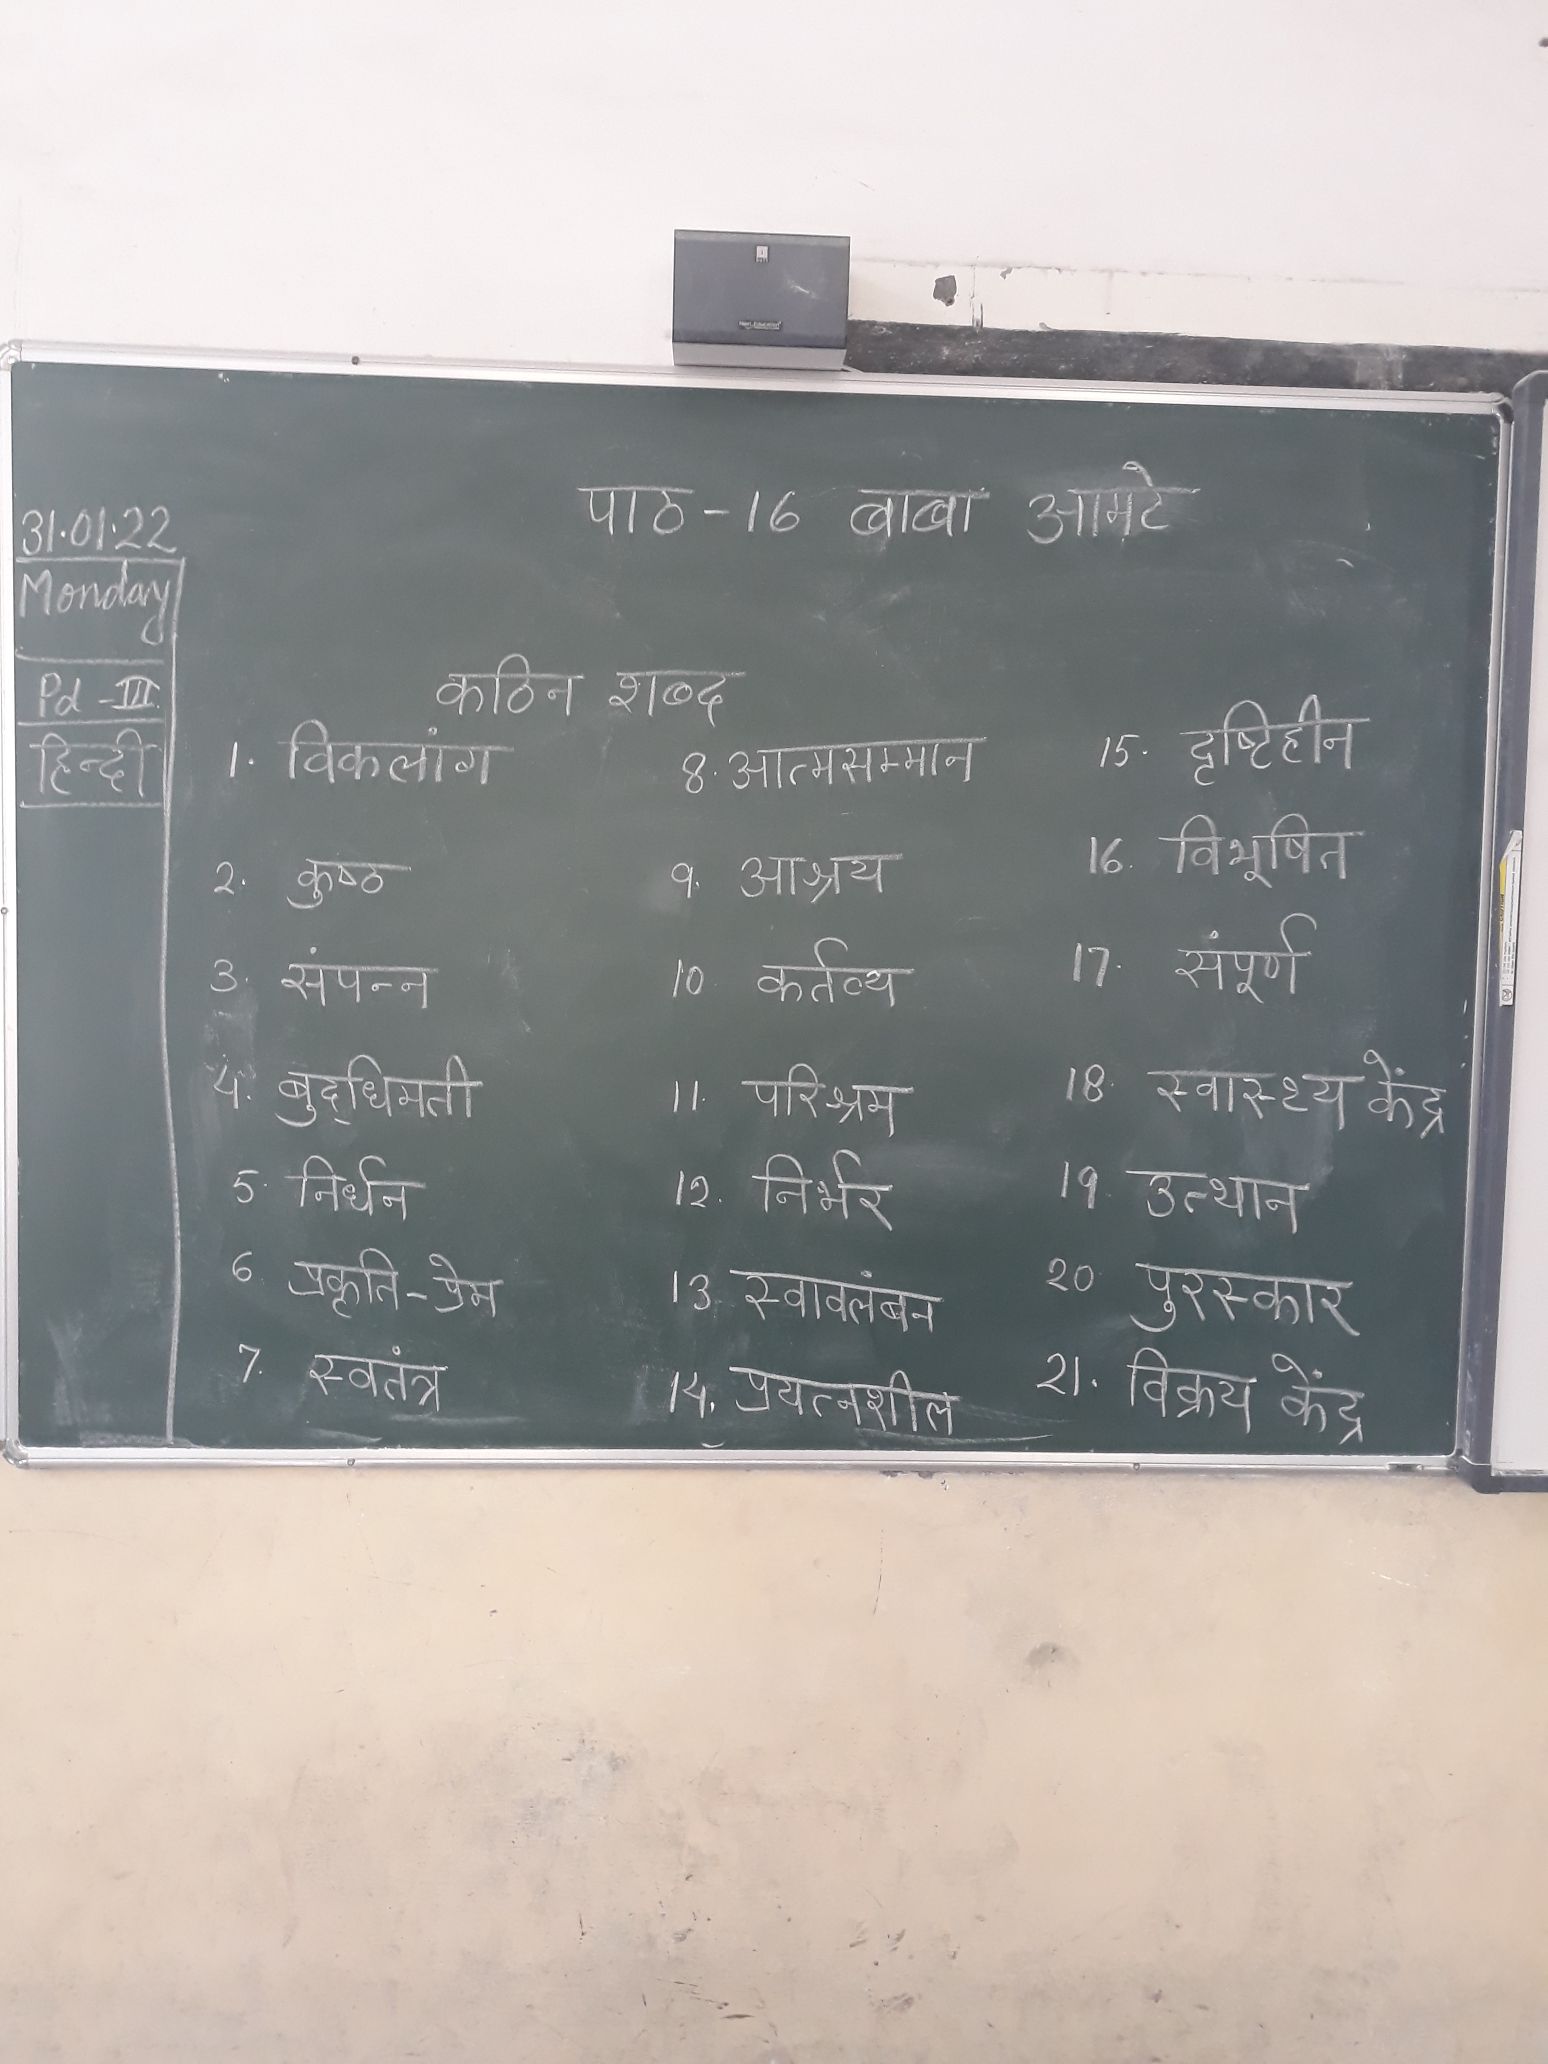 पाठ-16 बाबा आमटे
31.01.22
Monday
Pd-III
हिन्दी
कठिन शब्द
1. विकलांग
2. कुष्ठ
3. संपन्न
4. बुद्‌धिमती
5. निर्धन
6. प्रकृति-प्रेम
7. स्वतंत्र
8. आत्मसम्मान
9. आश्रय
10. कर्तव्य
11. परिश्रम
12. निर्भर
13. स्वावलंबन
14. प्रयत्नशील
15. दृष्टिहीन
16. विभूषित
17. संपूर्ण
18. स्वास्थ्य केंद्र
19. उत्थान
20. पुरस्कार
21. विक्रय केंद्र
Next Education